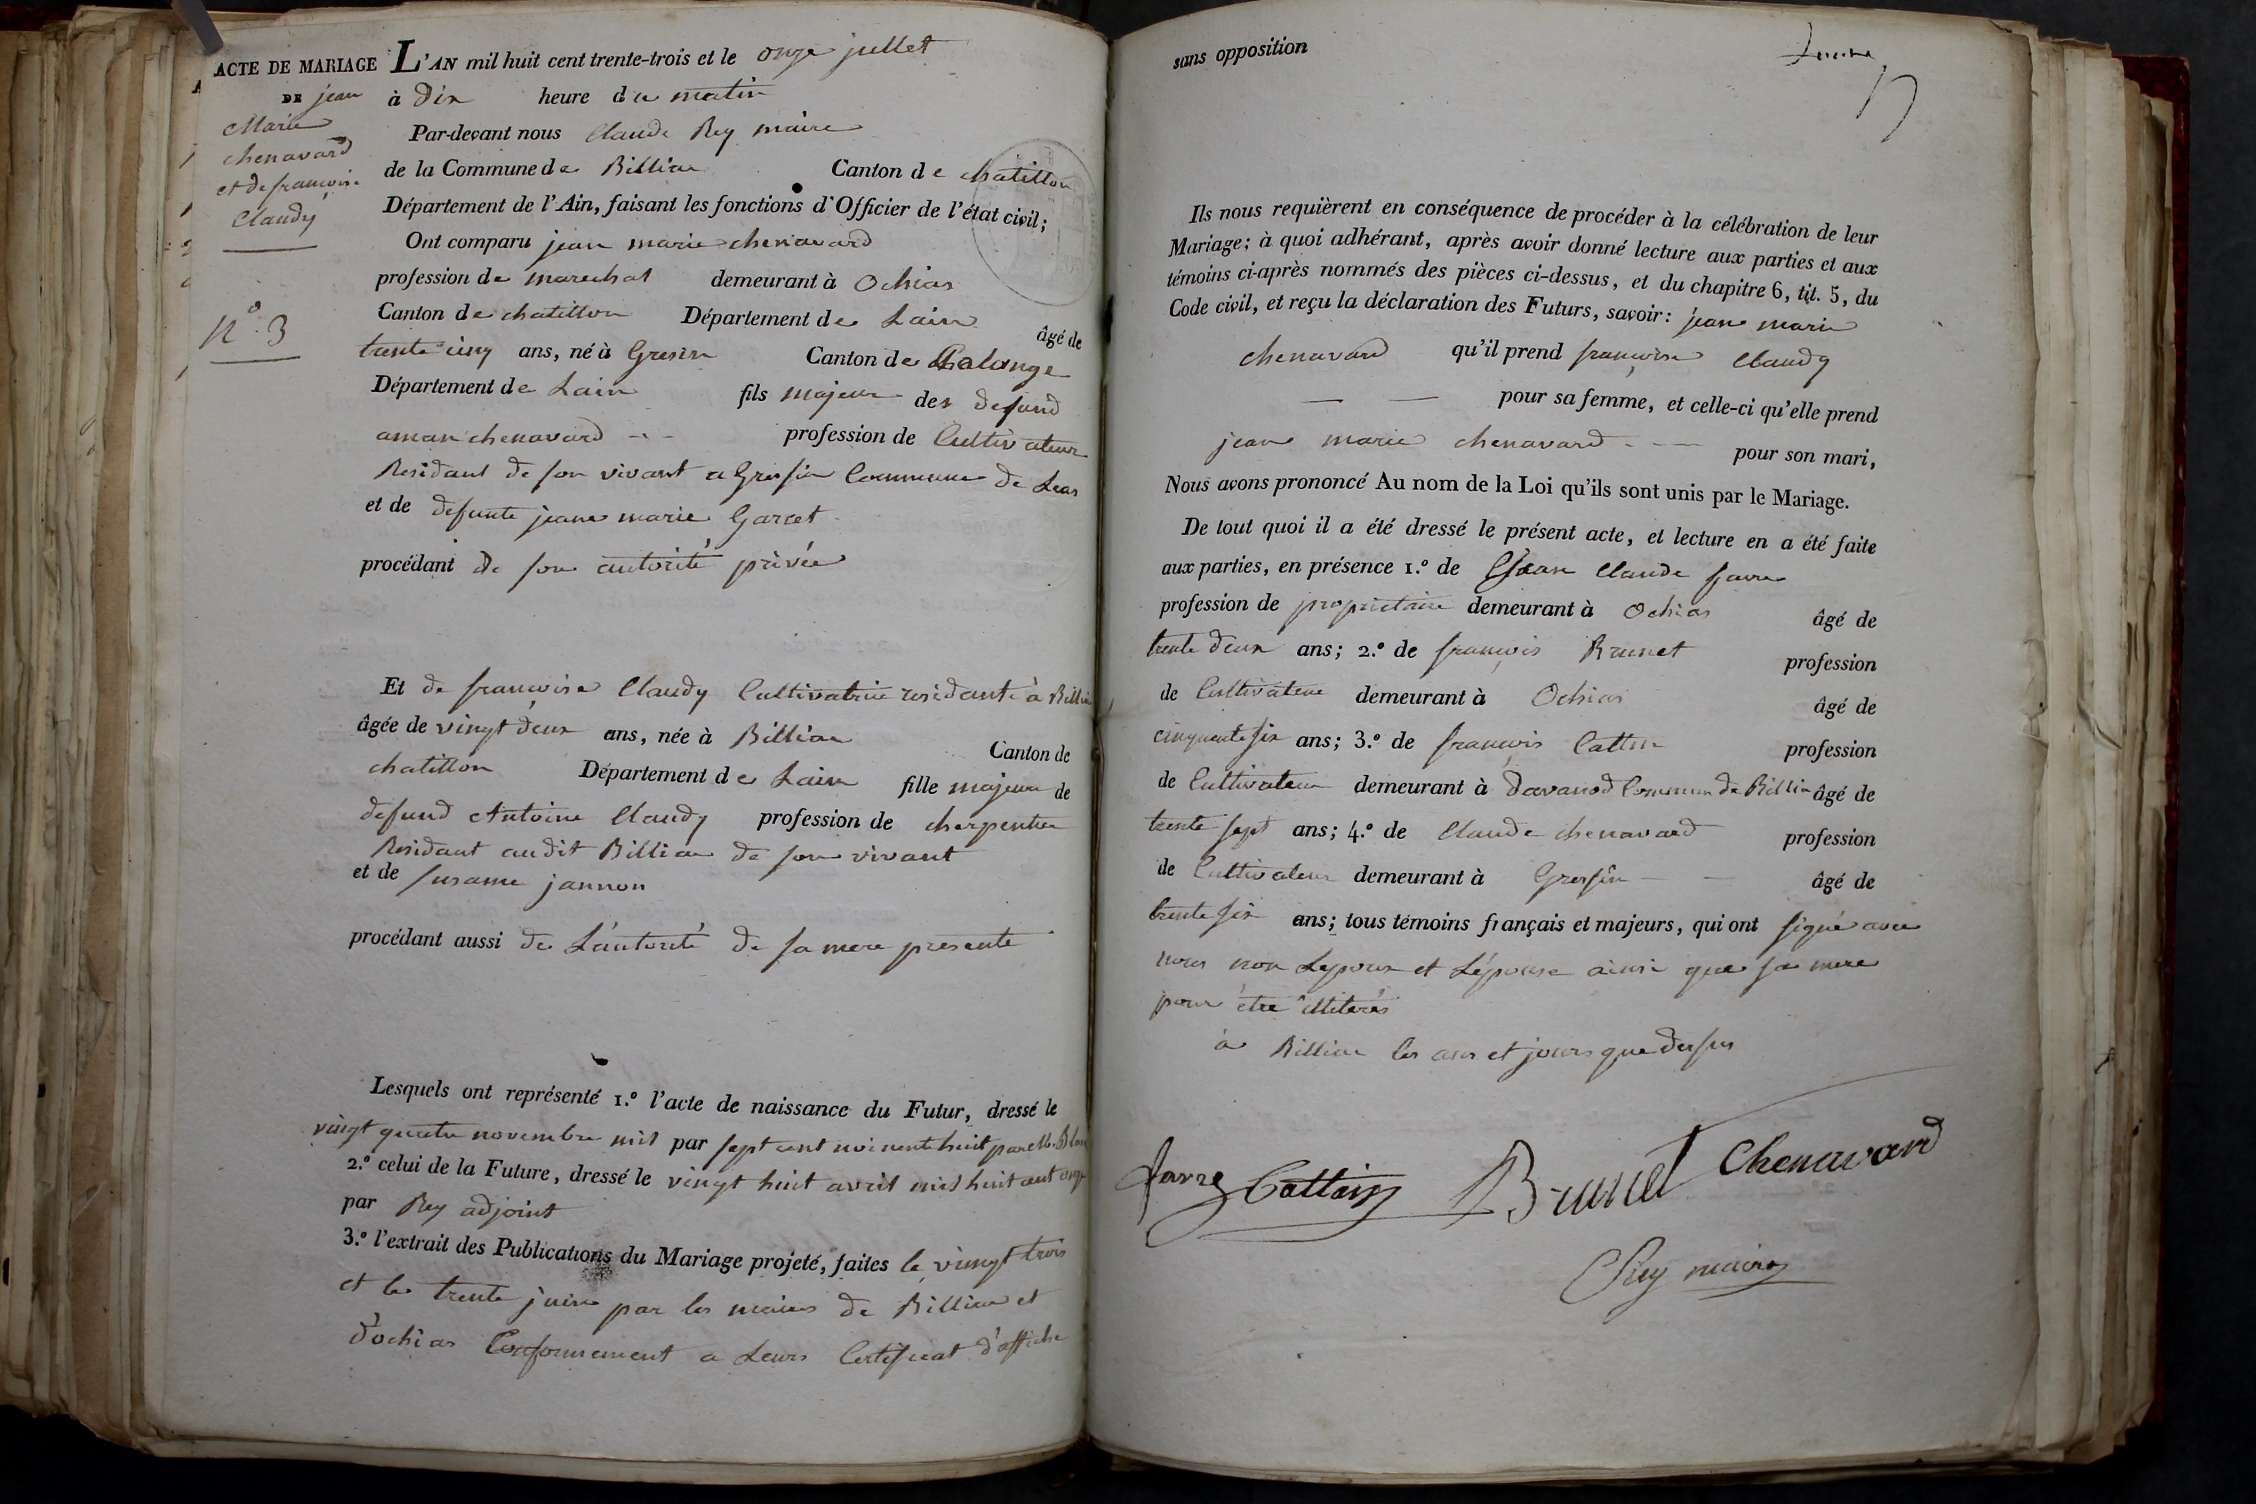 ACTE DE MARIAGE
DE jean
Marie
chenavard
et de françoise
Claudy
n.o 3
L'AN mil huit cent trente-trois et le onze juillet
à Dix heure du matin
Par-devant nous Claude Rey maire
de la Commune de Billiae Canton de chatillon
Département de l'Ain, faisant les fonctions d'Officier de l'état civil;
Ont comparu jean marie chenavard
profession de marechal demeurant à Ochias
Canton de chatillon Département de Lain âgé de
trente cinq ans, né à Gresin Canton de Calonge
Département de Lain fils majeur des defund
aman chenavard profession de Cultivateur
Residant de son vivant a Gresin Commune de Leas
et de defunte jeane marie Garcet
procédant de son autorité privée
Et de françoise Claudy Cultivatrice residante à Billia
âgée de vingt deux ans, née à Billiae Canton de
chatillon Département de Lain fille majeur de
defund Antoine Claudy profession de charpentier
Residant audit Billiae de son vivant
et de susanne jannon
procédant aussi de L'autorité de sa mere presente
Lesquels ont représenté 1.º l'acte de naissance du Futur, dressé le
vingt quatre novembre mil par sept cent noinente huit par M. Blan
2.º celui de la Future, dressé le vingt huit avril mil huit cent onze
par Rey adjoint
3.º l'extrait des Publications du Mariage projeté, faites le vingt trois
et le trente juin par les maires de Billiae et
d'ochias Conformement a Leurs Certificat d'affiche
sans opposition
Ils nous requièrent en conséquence de procéder à la célébration de leur
Mariage; à quoi adhérant, après avoir donné lecture aux parties et aux
témoins ci-après nommés des pièces ci-dessus, et du chapitre 6, tit. 5, du
Code civil, et reçu la déclaration des Futurs, savoir: jean marie
chenavard qu'il prend françoise Claudy
pour sa femme, et celle-ci qu'elle prend
jean marie chenavard pour son mari,
Nous avons prononcé Au nom de la Loi qu'ils sont unis par le Mariage.
De tout quoi il a été dressé le présent acte, et lecture en a été faite
aux parties, en présence 1.º de Jean Claude favre
profession de proprietaire demeurant à Ochias âgé de
trente deux ans; 2.º de françois Brunet profession
de Cultivateur demeurant à Ochias âgé de
cinquente six ans; 3.º de françois Cattin profession
de Cultivateur demeurant à Davanod Commun de Billia âgé de
trente sept ans; 4.º de Claude chenavard profession
de Cultivateur demeurant à Gresin âgé de
trente six ans; tous témoins français et majeurs, qui ont signé avec
nous non Lepoux et L'épouse ainsi que sa mere
pour être illiterés
à Billiae les ans et jours que dessus
favre Cattin Brunet Chenavard
Rey maire